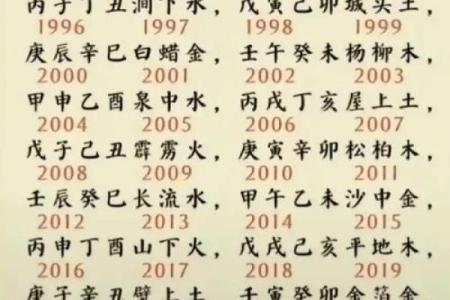 丙子丁丑涧下水， 戊寅己卯城头土，
1996 1997 1998 1999
庚辰辛巳白蜡金， 壬午癸未杨柳木，
2000 2001 2002 2003
甲申乙酉泉中水， 丙戌丁亥屋上土，
2004 2005 2006 2007
戊子己丑霹雳火， 庚寅辛卯松柏木，
2008 2009 2010 2011
壬辰癸巳长流水， 甲午乙未沙中金，
2012 2013 2014 2015
丙申丁酉山下火， 戊戌己亥平地木，
2016 2017 2018 2019
庚子辛丑壁上土， 壬寅癸卯金箔金，